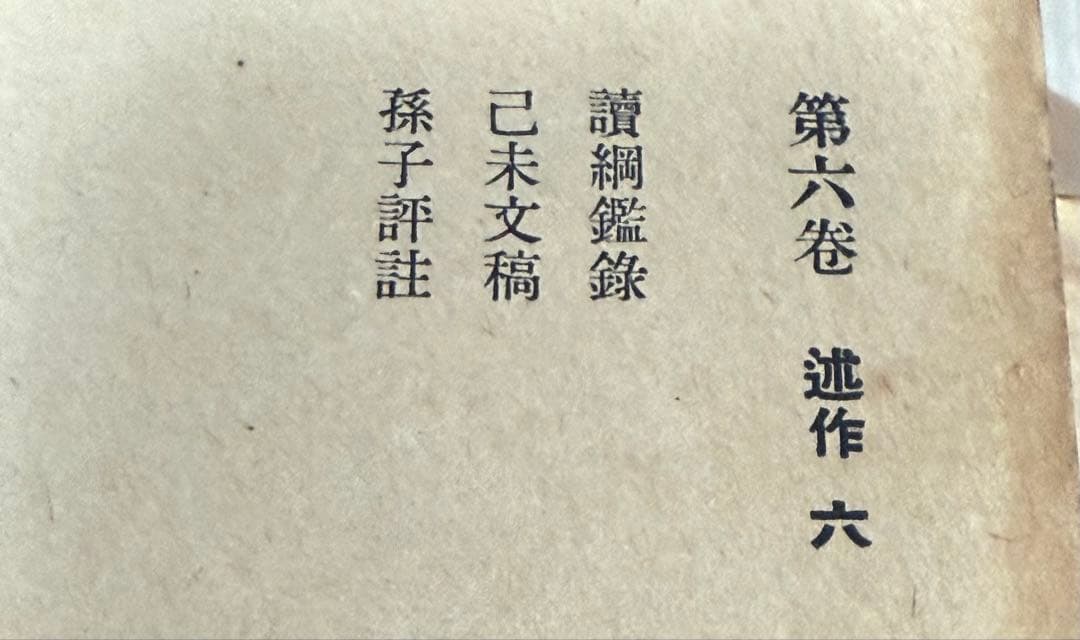 第六卷　述作　六
讀綱鑑錄
己未文稿
孫子評註